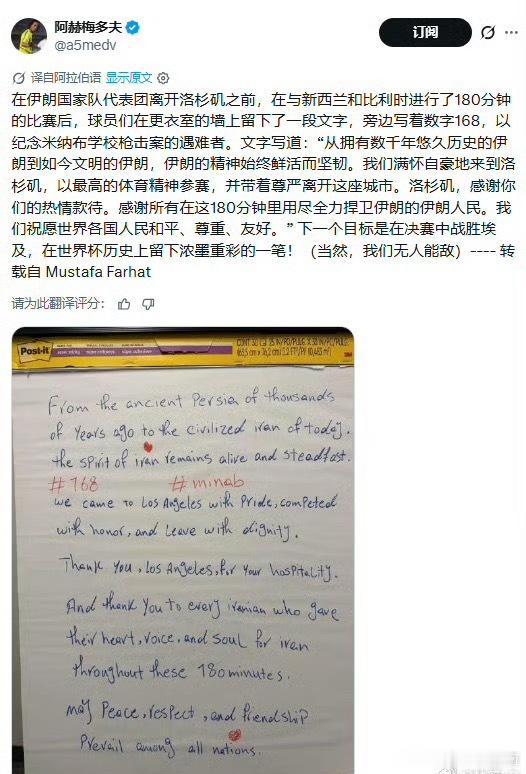 阿赫梅多夫
@a5medv
订阅
译自阿拉伯语 显示原文
在伊朗国家队代表团离开洛杉矶之前，在与新西兰和比利时进行了180分钟
的比赛后，球员们在更衣室的墙上留下了一段文字，旁边写着数字168，以
纪念米纳布学校枪击案的遇难者。文字写道：“从拥有数千年悠久历史的伊
朗到如今文明的伊朗，伊朗的精神始终鲜活而坚韧。我们满怀自豪地来到洛
杉矶，以最高的体育精神参赛，并带着尊严离开这座城市。洛杉矶，感谢你
们的热情款待。感谢所有在这180分钟里用尽全力捍卫伊朗的伊朗人民。我
们祝愿世界各国人民和平、尊重、友好。” 下一个目标是在决赛中战胜埃
及，在世界杯历史上留下浓墨重彩的一笔！（当然，我们无人能敌）---- 转
载自 Mustafa Farhat
请为此翻译评分：
Post-it
super sticky
From the ancient Persia of thousands
of years ago to the civilized iran of today.
the spirit of iran remains alive and steadfast.
#168 #minab
we came to Los Angeles with Pride, competed
with honor, and Leave with dignity.
Thank you, Los Angeles, for your hospitality.
And thank you to every iranian who gave
their heart, voice, and soul for iran
throughout these 180 minutes.
may Peace, respect, and friendship
Prevail among all nations.